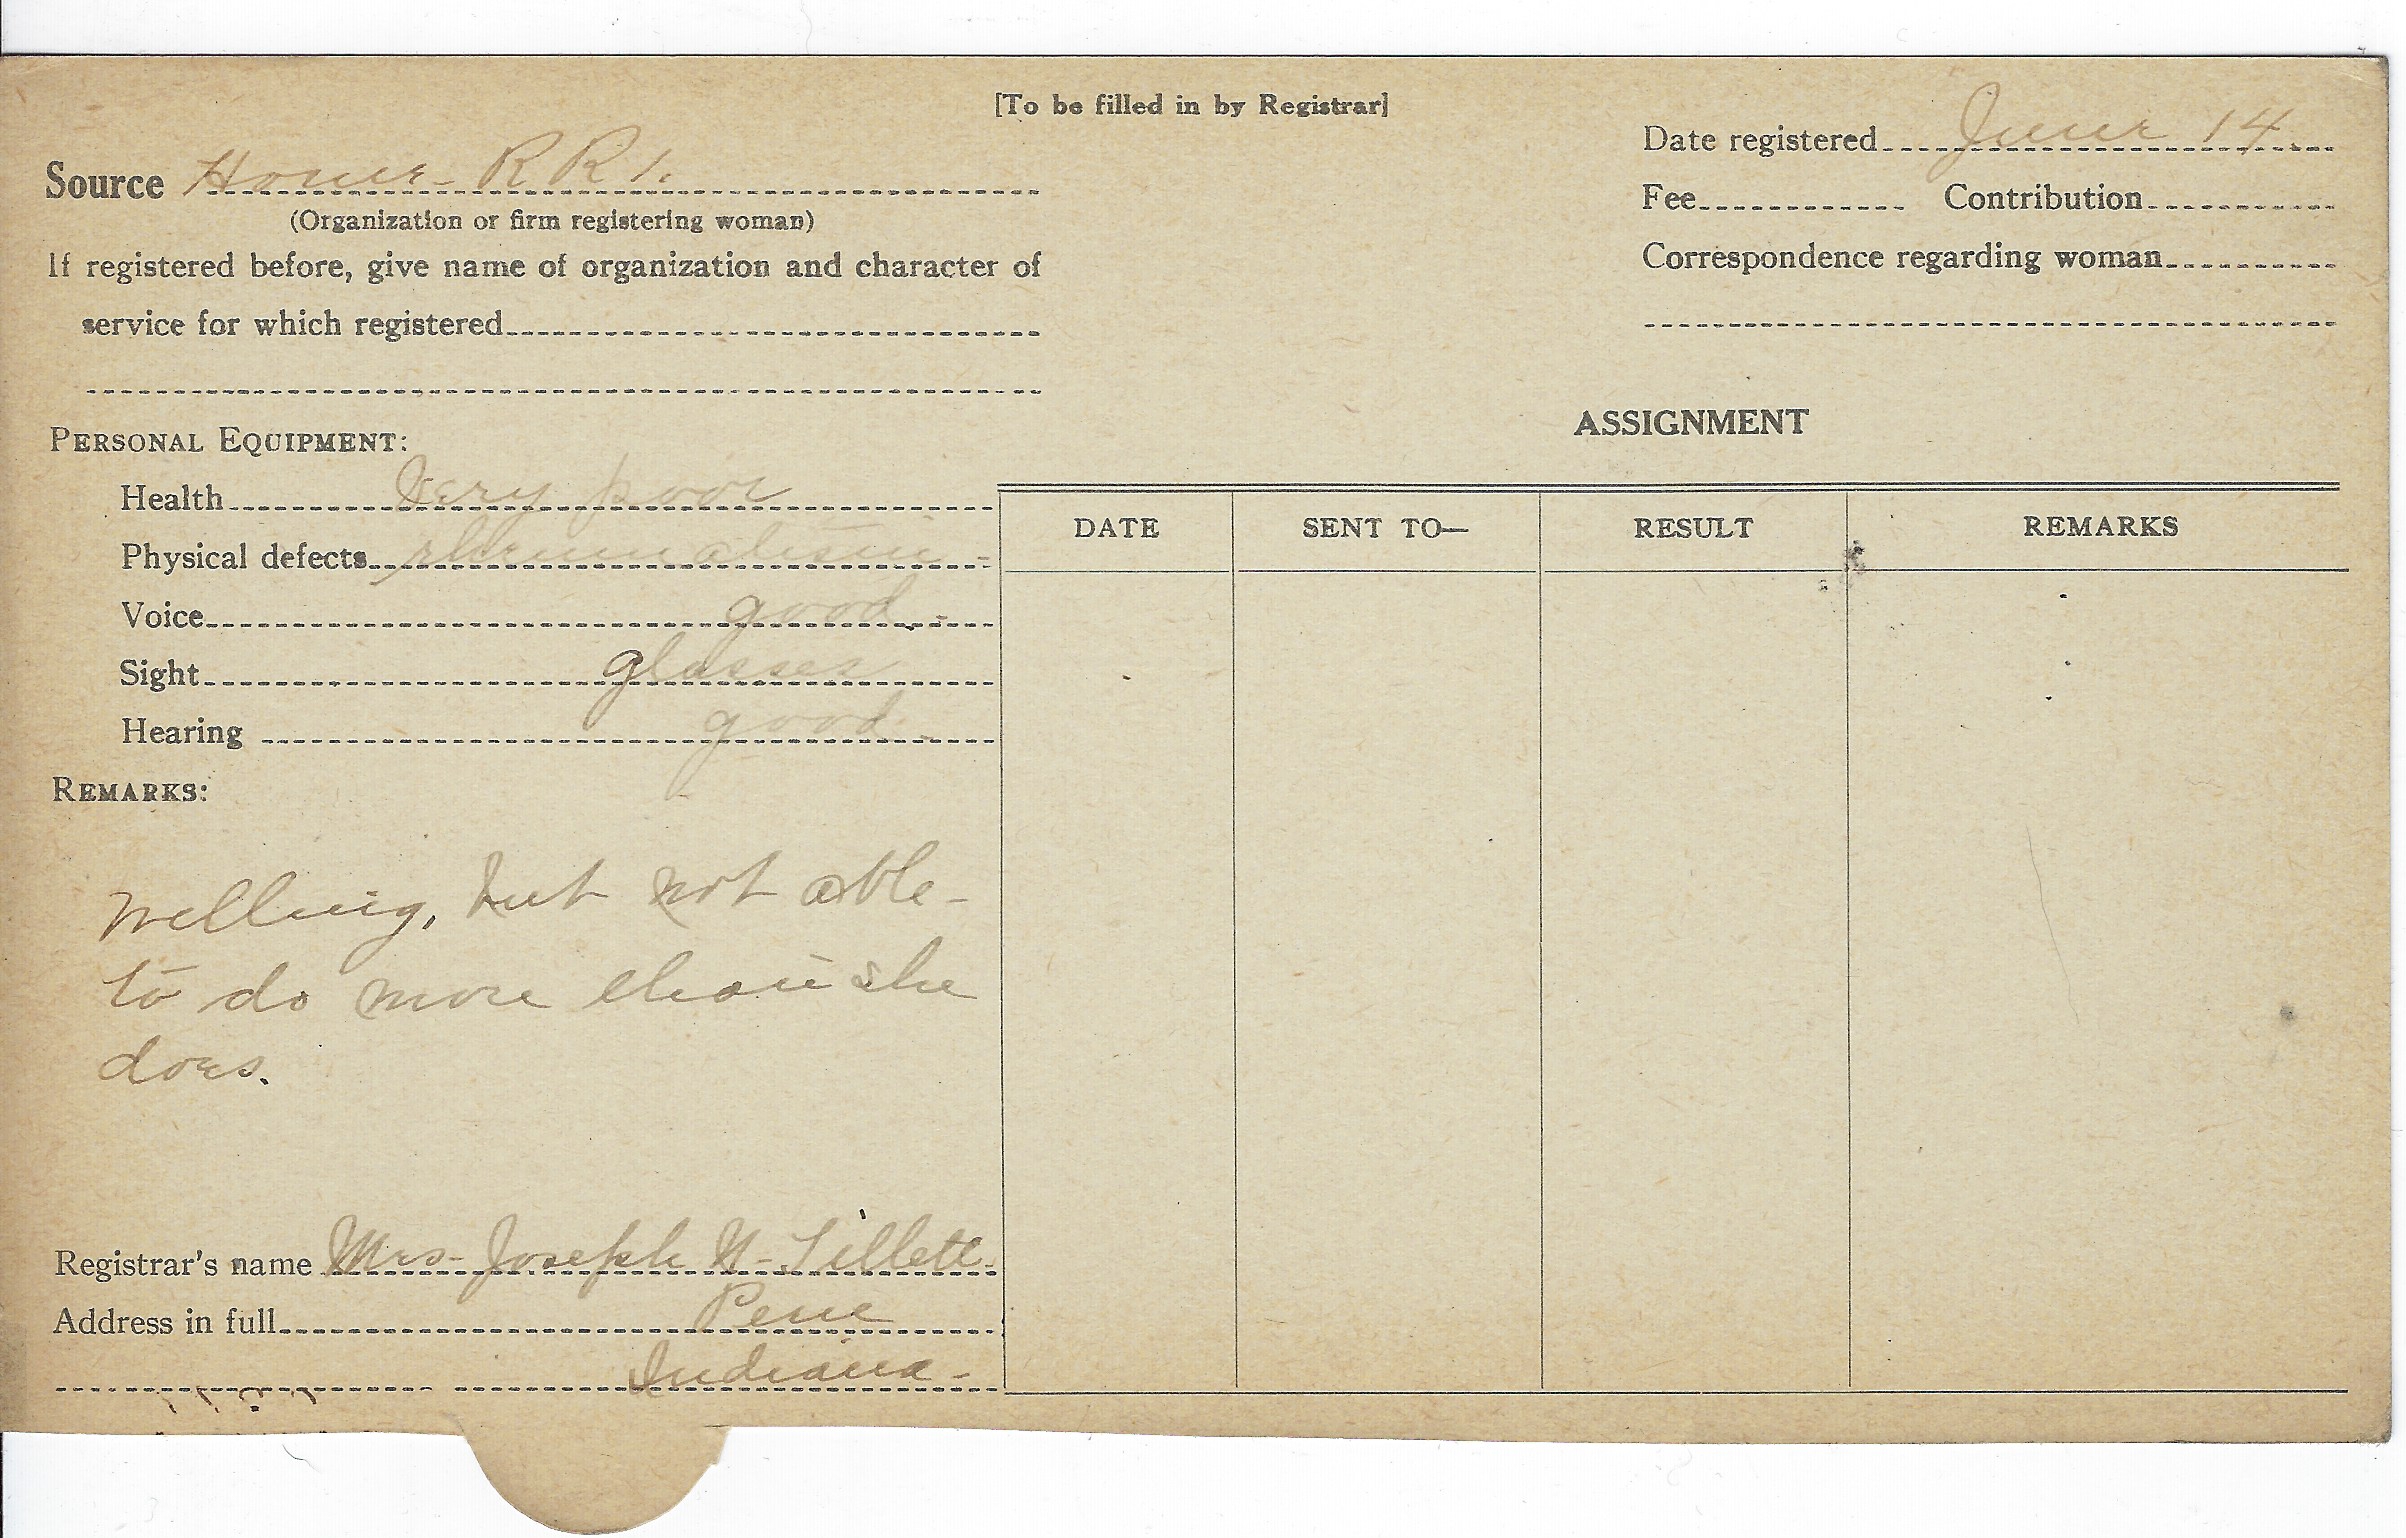 [To be filled in by Registrar]
Source Home - R R 1.
(Organization or firm registering woman)
If registered before, give name of organization and character of
service for which registered
Date registered June 14
Fee Contribution
Correspondence regarding woman
PERSONAL EQUIPMENT:
Health Very poor
Physical defects rheumatism -
Voice good -
Sight glasses
Hearing good -
REMARKS:
Willing, but not able -
to do more than she
does.
Registrar's name Mrs - Joseph N - Tillett
Address in full Peru
Indiana -
ASSIGNMENT
DATE SENT TO— RESULT REMARKS